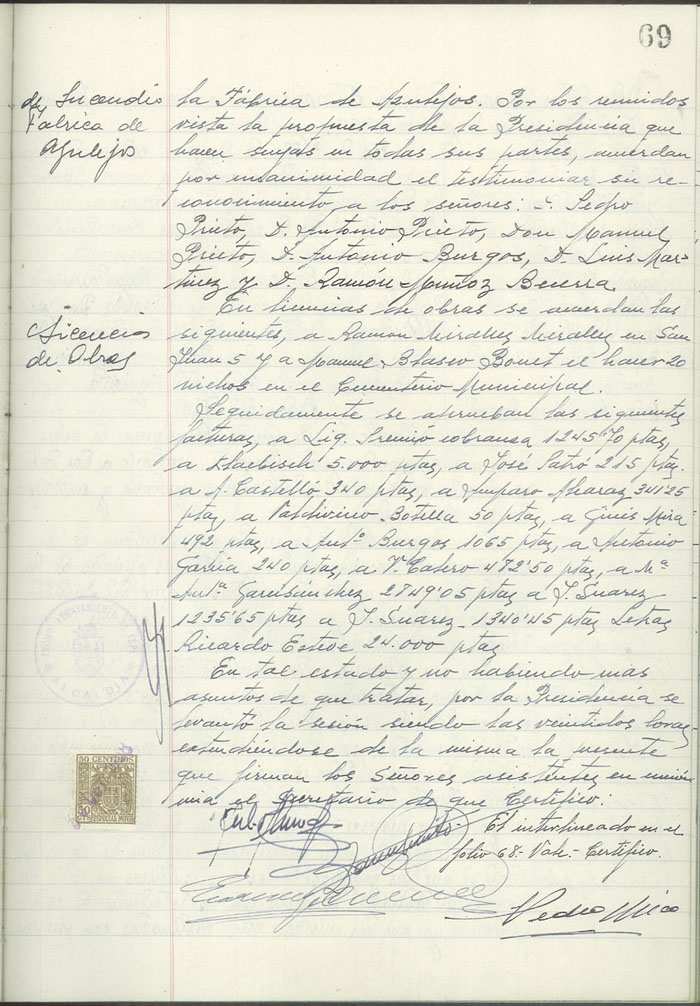 69
de Incendio
Fabrica de
Azulejos
la Fábrica de Azulejos. Por los reunidos
vista la propuesta de la Presidencia que
hacen suyas en todas sus partes, acuerdan
por unanimidad el testimoniar su re-
conocimiento a los señores: D. Pedro
Prieto, D. Antonio Prieto, Don Manuel
Prieto, D. Antonio Burgos, D. Luis Mar-
tinez y D. Ramón Muñoz Becerra.
Licencias
de Obras
En licencias de obras se acuerdan las
siguientes, a Ramon Miralles Miralles en San
Juan 5 y a Manuel Blasco Bonet el hacer 20
nichos en el Cementerio Municipal.
Seguidamente se aprueban las siguientes
facturas, a Liq. Premio cobranza 1245'70 ptas,
a 5.000 ptas, a José 215 ptas.
a A. Castelló 340 ptas, a Amparo Alcaraz 341'25
ptas, a Botella 50 ptas, a Ginés Mira
492 ptas, a Antº Burgos 1065 ptas, a Antonio
García 240 ptas, a Vte Cabero 472'50 ptas, a Mª
Antª 2749'05 ptas a J. Suarez
1235'65 ptas a J. Suarez 1340'45 ptas Letras
Ricardo Esteve 24.000 ptas
En tal estado y no habiendo mas
asuntos de que tratar, por la Presidencia se
levantó la sesión siendo las veintidos horas
extendiéndose de la misma la presente
que firman los Señores asistentes en
el Secretario de que Certifico:
El interlineado en el
folio 68- Vale- Certifico.
Pedro Mico
ALCALDIA
50 CENTIMOS
ESPECIAL MOVIL